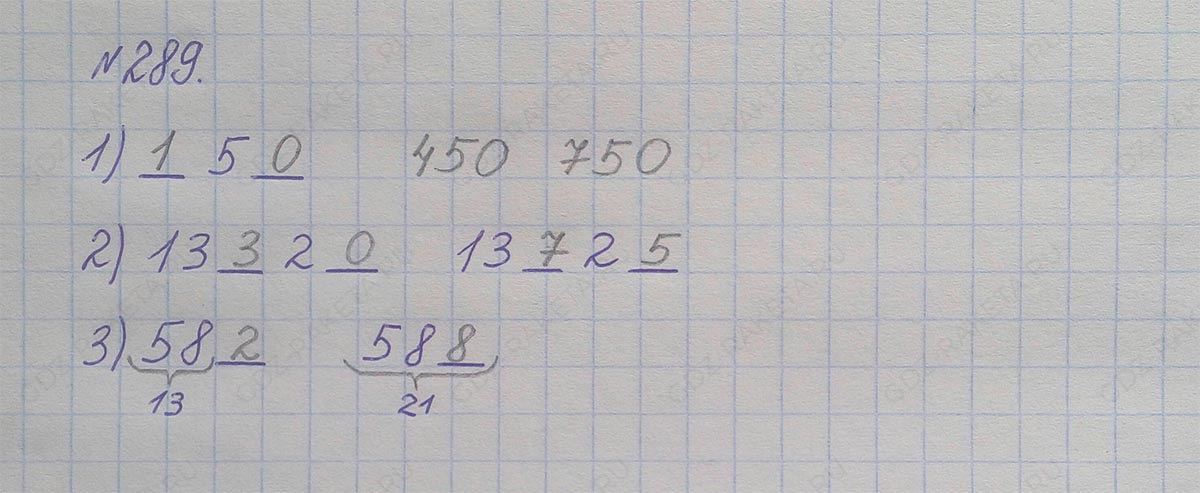 №289.
1) 1 5 0 450 750
2) 13 3 2 0 13 7 2 5
3) 58 2 58 8
13 21